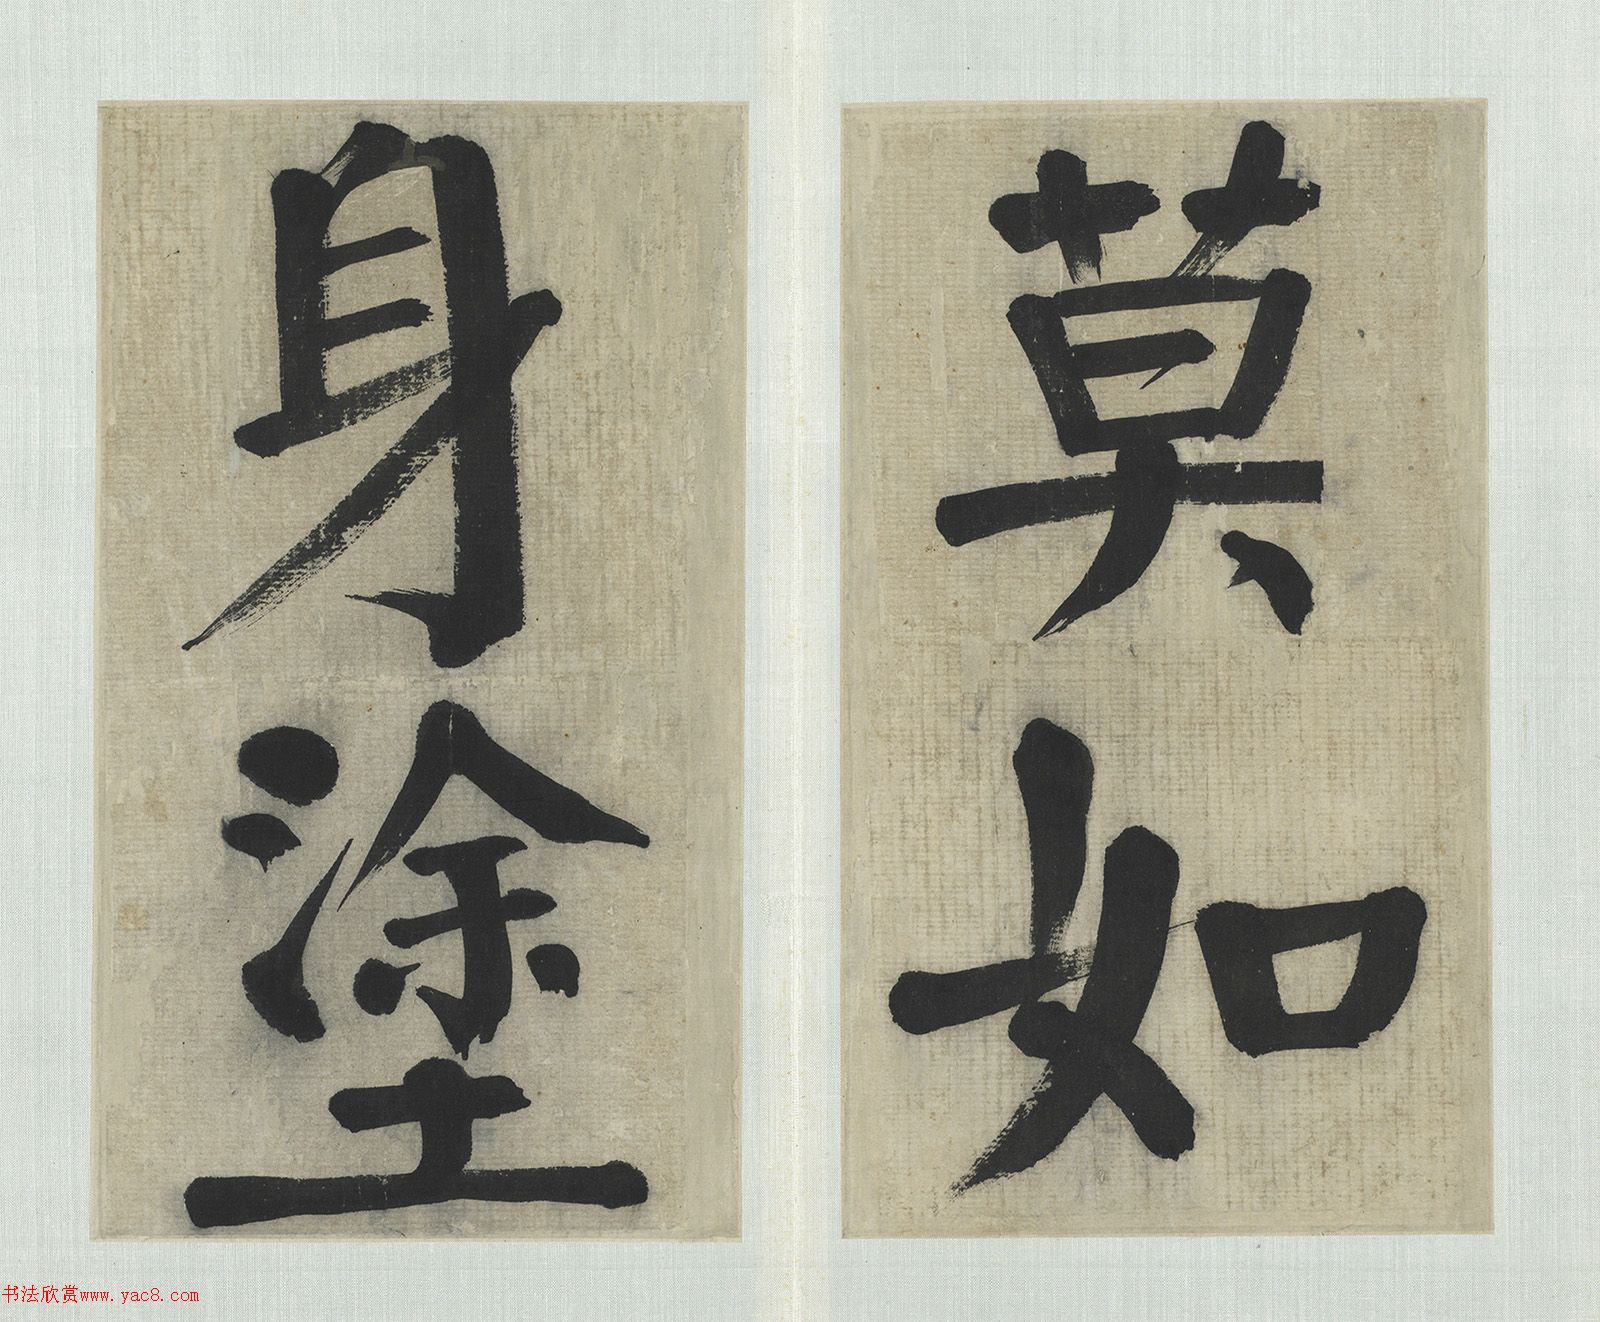 莫如
身塗
书法欣赏www.yac8.com